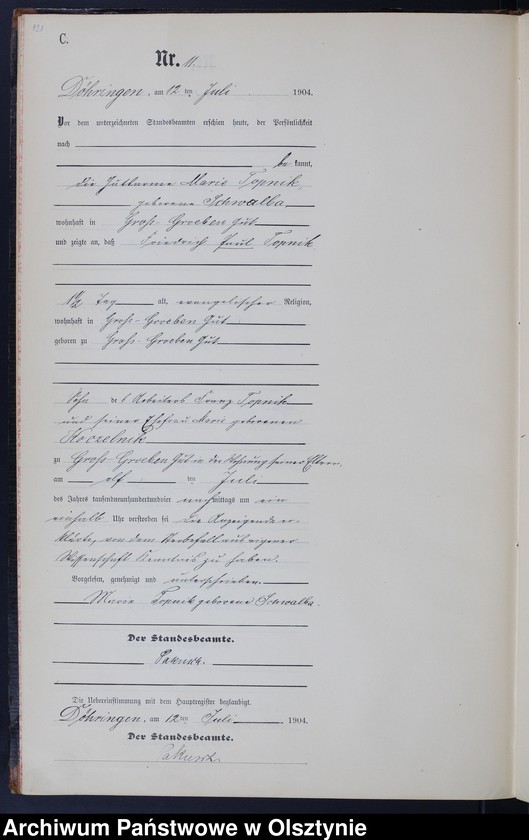 121
C.
Nr. 11.
Döhringen, am 12 ten Juli 1904.
Vor dem unterzeichneten Standesbeamten erschien heute, der Persönlichkeit
nach
be kannt,
die Marie Topnik,
geborene Schwalba
wohnhaft in Groß-Groeben Gut
und zeigte an, daß Friedrich Paul Topnik
1 1/2 Tag alt, evangelischer Religion,
wohnhaft in Groß-Groeben Gut
geboren zu Groß-Groeben Gut
Sohn de s Arbeiters Franz Topnik
und seiner Ehefrau Marie geborenen
Koczelnik
zu Groß-Groeben Gut in der Wohnung seiner Eltern,
am elf ten Juli
des Jahres tausendneunhundertundvier nachmittags um ein
einhalb Uhr verstorben sei. Die Anzeigende er-
klärte, von dem Sterbefall aus eigener
Wissenschaft Kenntnis zu haben.
Vorgelesen, genehmigt und unterschrieben.
Marie Topnik geborene Schwalba.
Der Standesbeamte.
Die Uebereinstimmung mit dem Hauptregister beglaubigt.
Döhringen, am 12 ten Juli 1904.
Der Standesbeamte.
Archiwum Państwowe w Olsztynie